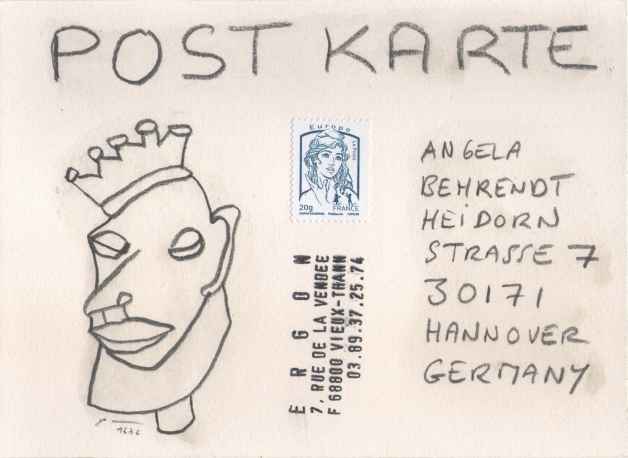 POST KARTE
Europa
20g FRANCE
ERGON
7, RUE DE LA VENDEE
F 68800 VIEUX-THANN
03.89.37.25.74
ANGELA
BEHRENDT
HEiDORN
STRASSE 7
30171
HANNOVER
GERMANY